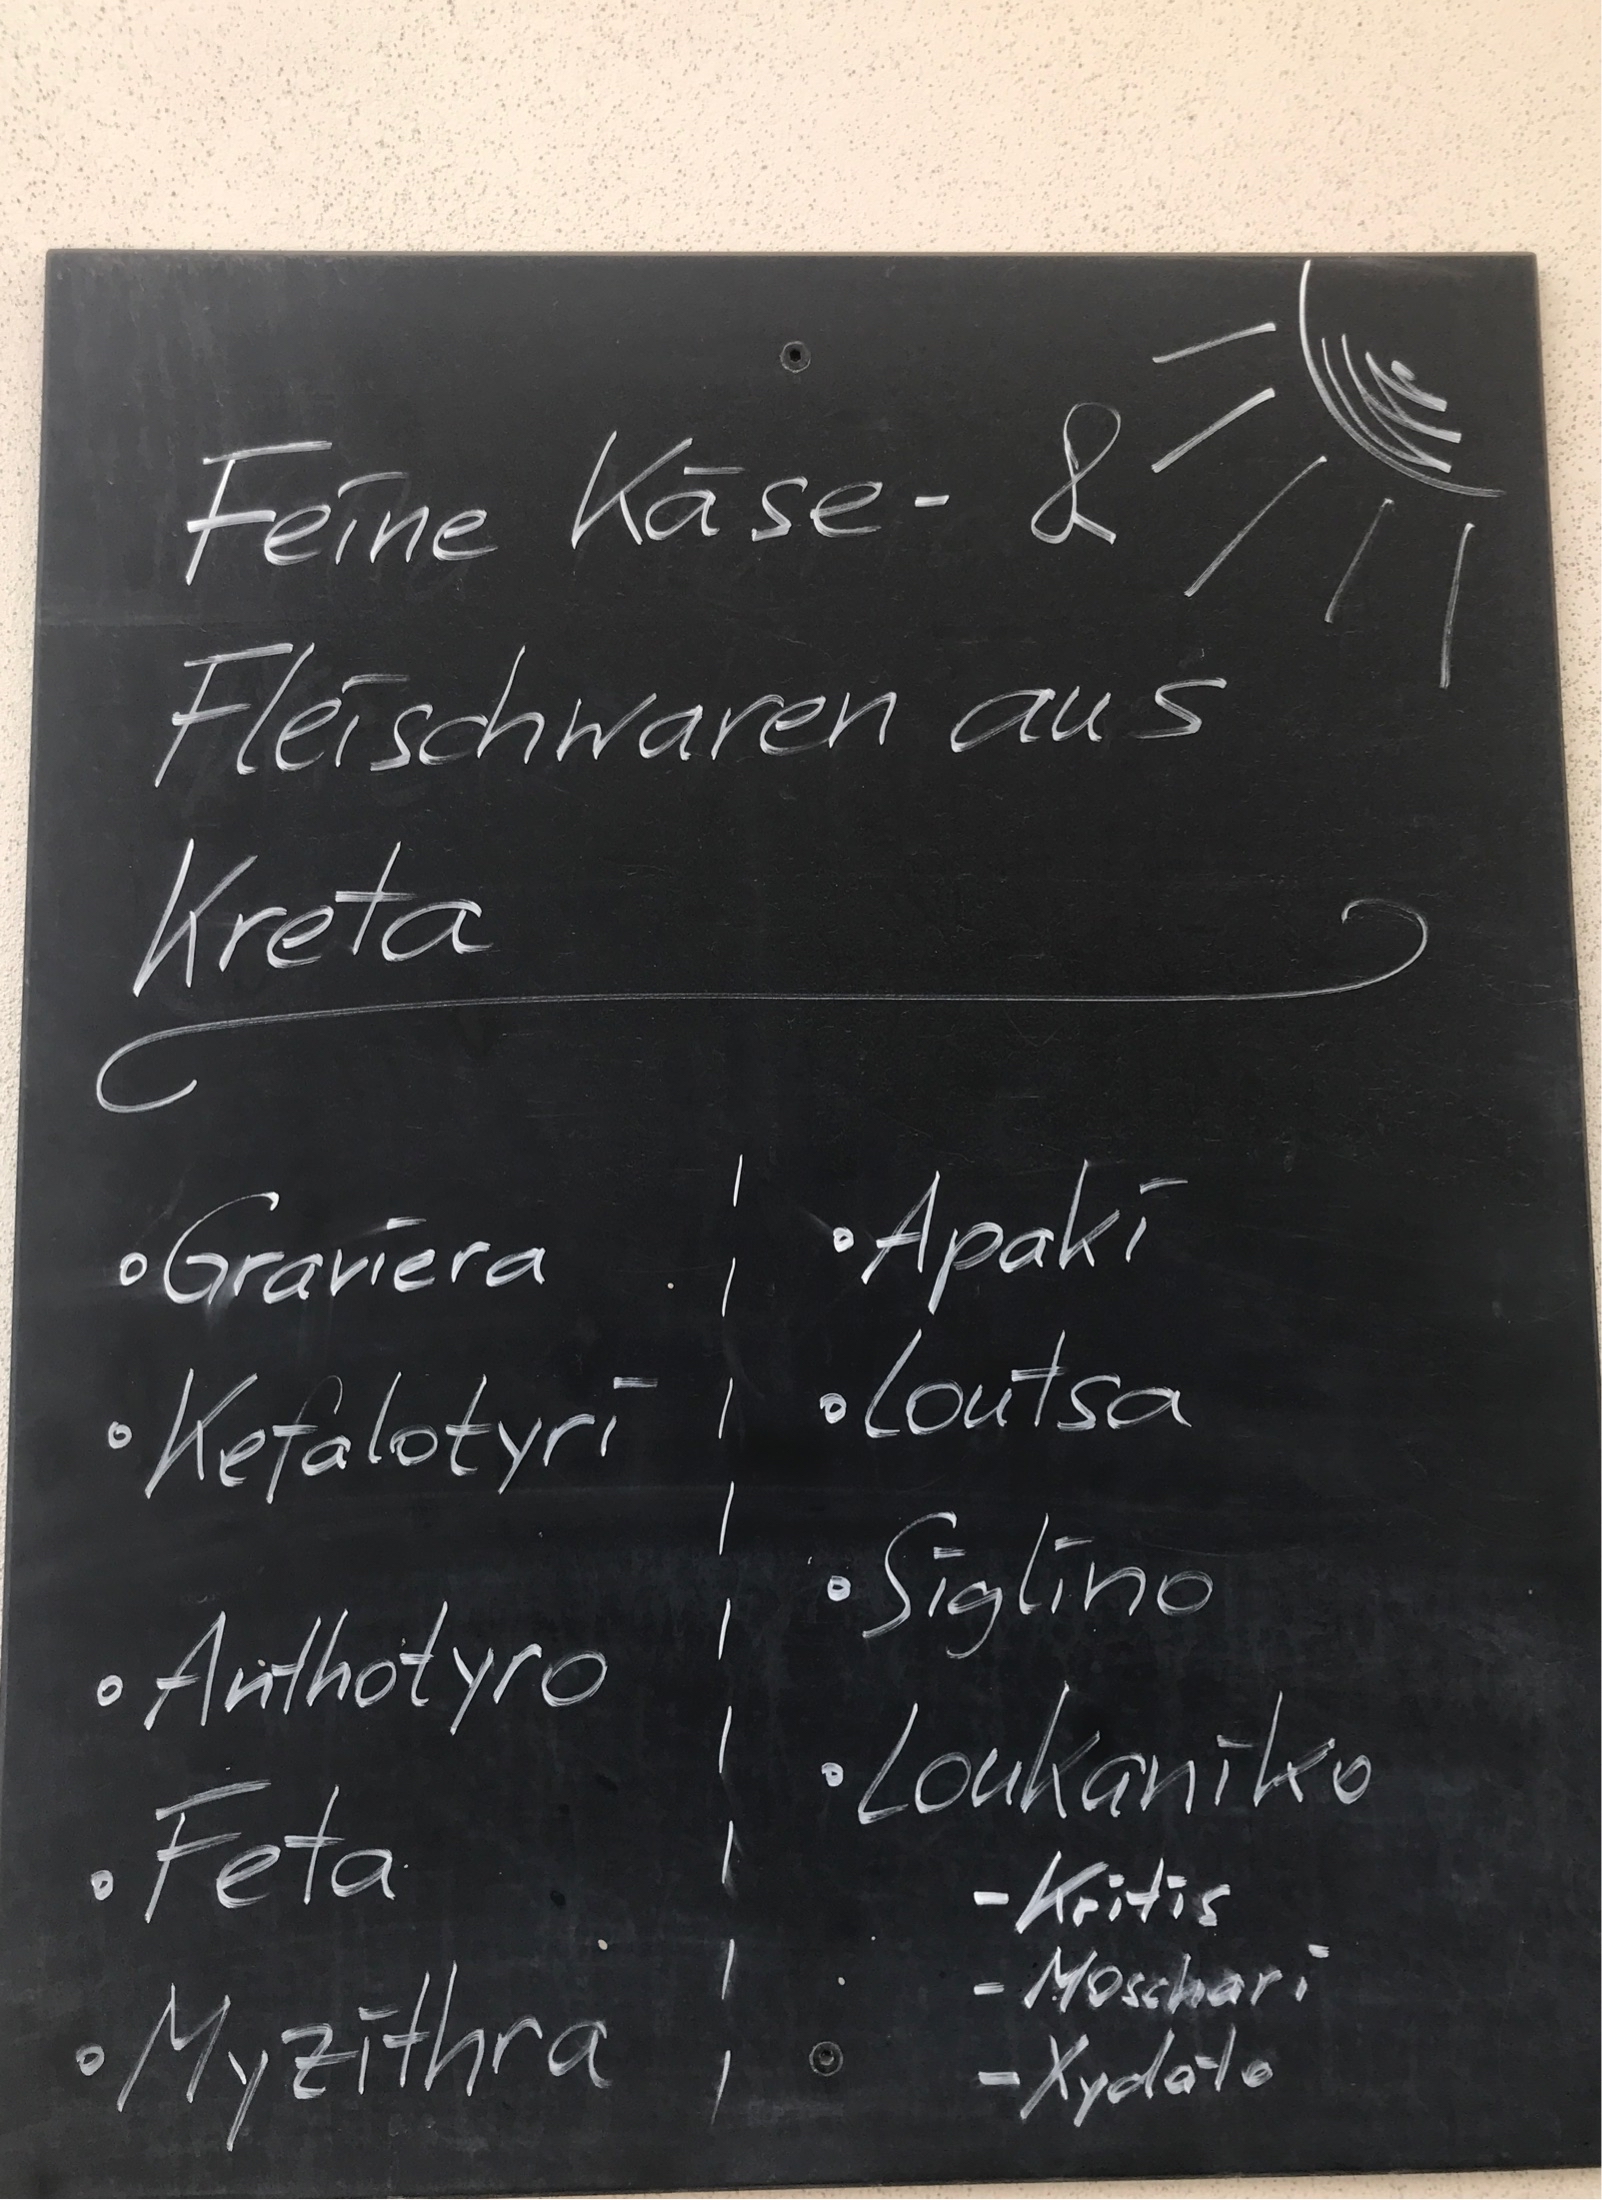 Feine Käse- &
Fleischwaren aus
Kreta
Graviera
Kefalotyri
Anthotyro
Feta
Myzithra
Apaki
Loutsa
Siglino
Loukaniko
- Kritis
- Moschari
- Xydato